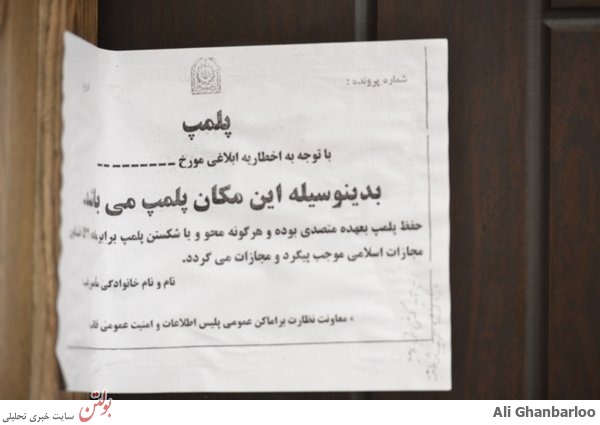 شماره پرونده :
پلمپ
با توجه به اخطاریه ابلاغی مورخ ـ ـ ـ ـ ـ ـ ـ ـ ـ
بدینوسیله این مکان پلمپ می باشد.
حفظ پلمپ بعهده متصدی بوده و هرگونه محو و یا شکستن پلمپ برابر
مجازات اسلامی موجب پیگرد و مجازات می گردد.
نام و نام خانوادگی
* معاونت نظارت براماکن عمومی پلیس اطلاعات و امنیت عمومی
بولتن سایت خبری تحلیلی
Ali Ghanbarloo